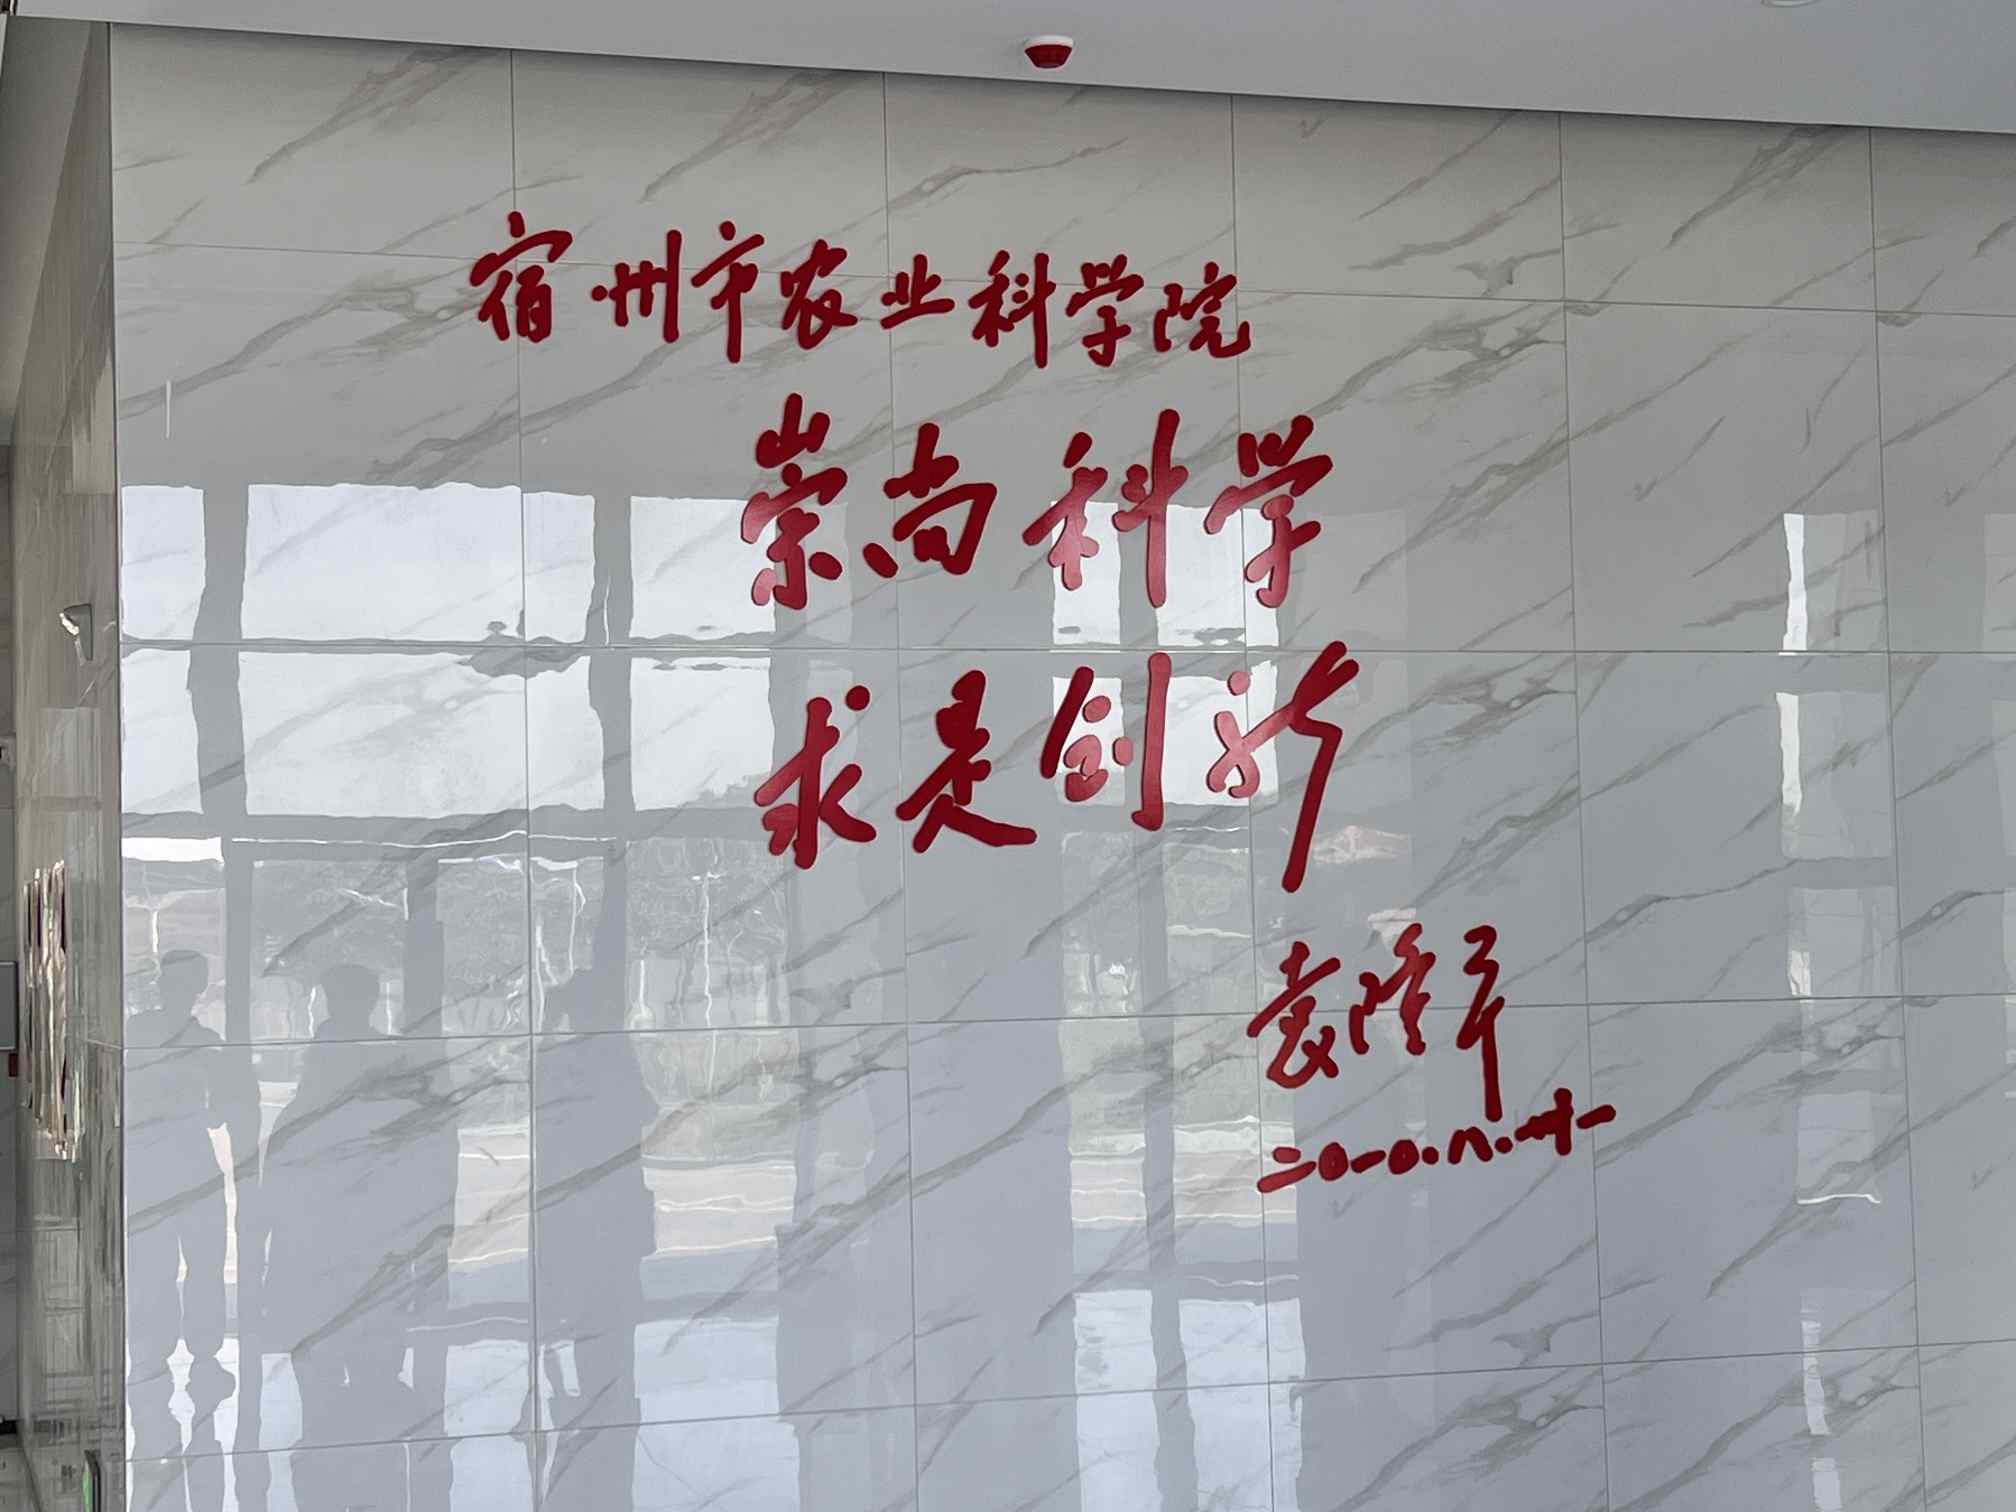 宿州市农业科学院
崇尚科学
求是创新
袁隆平
二0一0.八.廿一